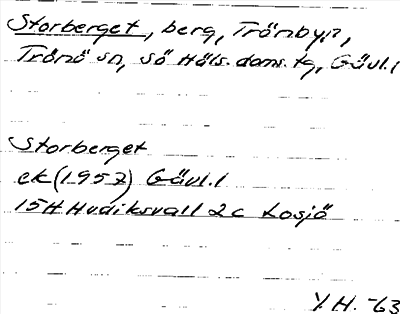 Storberget, berg, Trönbyn,
Trönö sn, Sö Häls. doms. tg, Gävl. l
Storberget
ek (1957) Gävl. l
15H Hudiksvall 2c Losjö
Y.H. -63